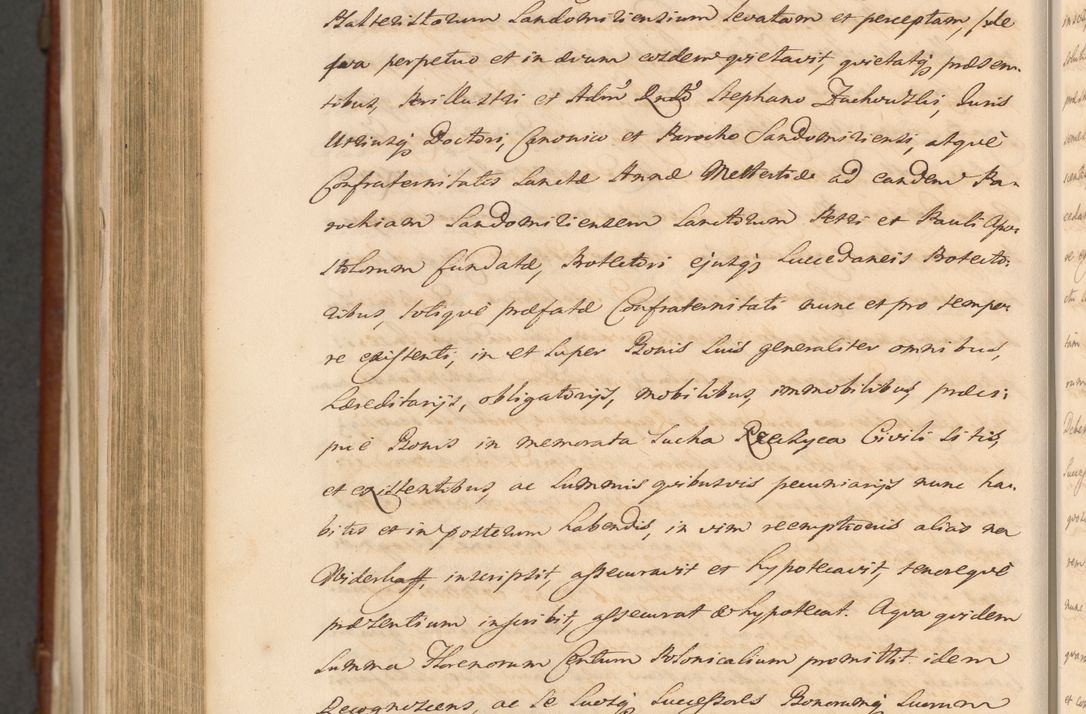 Halteristorum Sandomiriensium levatam et perceptam, de
qua perpetuo et in ævum eosdem quietavit, quietatq præsen-
tibus, Perillustri et Adm Rndo Stephano Zuchowski, Juris
Utriusq Doctori, Canonico et Parocho Sandomiriensi, atquè
Confraternitatis Sanctæ Annæ Mettertiæ ad eandem Pa-
rochiam Sandomiriensem Sanctorum Petri et Pauli Apo-
stolorum fundatæ, Protectori ejusq Succedaneis Protecto-
ribus, totiquè præfatæ Confraternitati nunc et pro tempo-
re existenti, in et super Bonis suis generaliter omnibus,
hæreditarijs, obligatorijs, mobilibus, immobilibus, præci-
puè Bonis in memorata Sucha Rzeczyca Civili sitis,
et existentibus, ac summis quibusvis pecuniarijs nunc ha-
bitis et in posterum habendis, in vim reemptionis alias na
Widerkaff, inscripsit, assecuravit et hypotecavit, tenorequè
præsentium inscribit, assecurat et hypotecat. A qua quidem
summa Florenorum Centum Polonicalium promittit idem
Recognoscens, ac se suosq Successores Bonorumq suorum